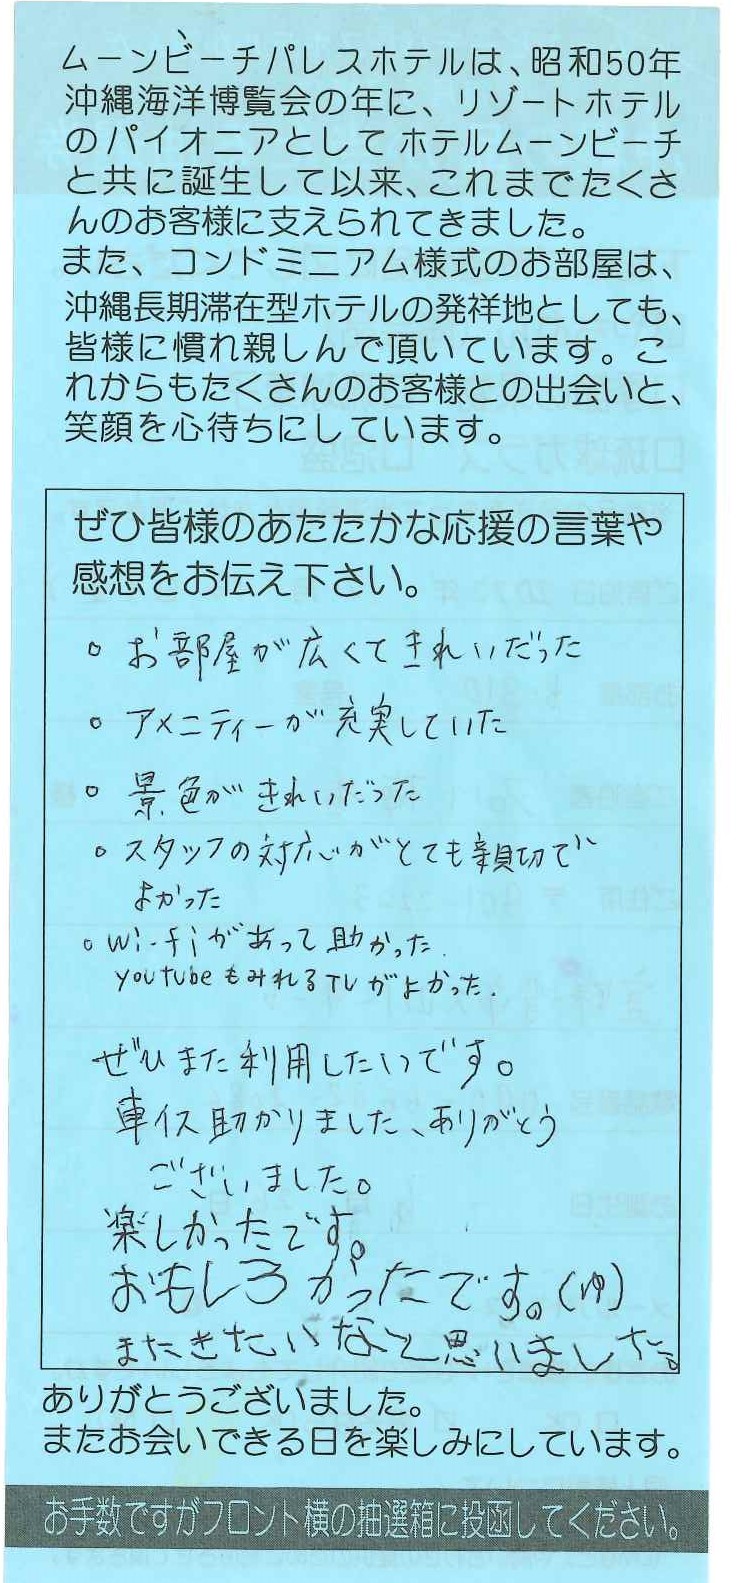 ムーンビーチパレスホテルは、昭和50年
沖縄海洋博覧会の年に、リゾートホテル
のパイオニアとしてホテルムーンビーチ
と共に誕生して以来、これまでたくさ
んのお客様に支えられてきました。
また、コンドミニアム様式のお部屋は、
沖縄長期滞在型ホテルの発祥地としても、
皆様に慣れ親しんで頂いています。こ
れからもたくさんのお客様との出会いと、
笑顔を心待ちにしています。
ぜひ皆様のあたたかな応援の言葉や
感想をお伝え下さい。
。お部屋が広くてきれいだった
。アメニティーが充実していた
。景色がきれいだった
。スタッフの対応がとても親切で
よかった
。Wi-fiがあって助かった.
youtubeもみれるTVがよかった.
ぜひまた利用したいです。
車イス助かりました、ありがとう
ございました。
楽しかったです。
おもしろかったです。(ゆ)
またきたいなと思いました。
ありがとうございました。
またお会いできる日を楽しみにしています。
お手数ですがフロント横の抽選箱に投函してください。